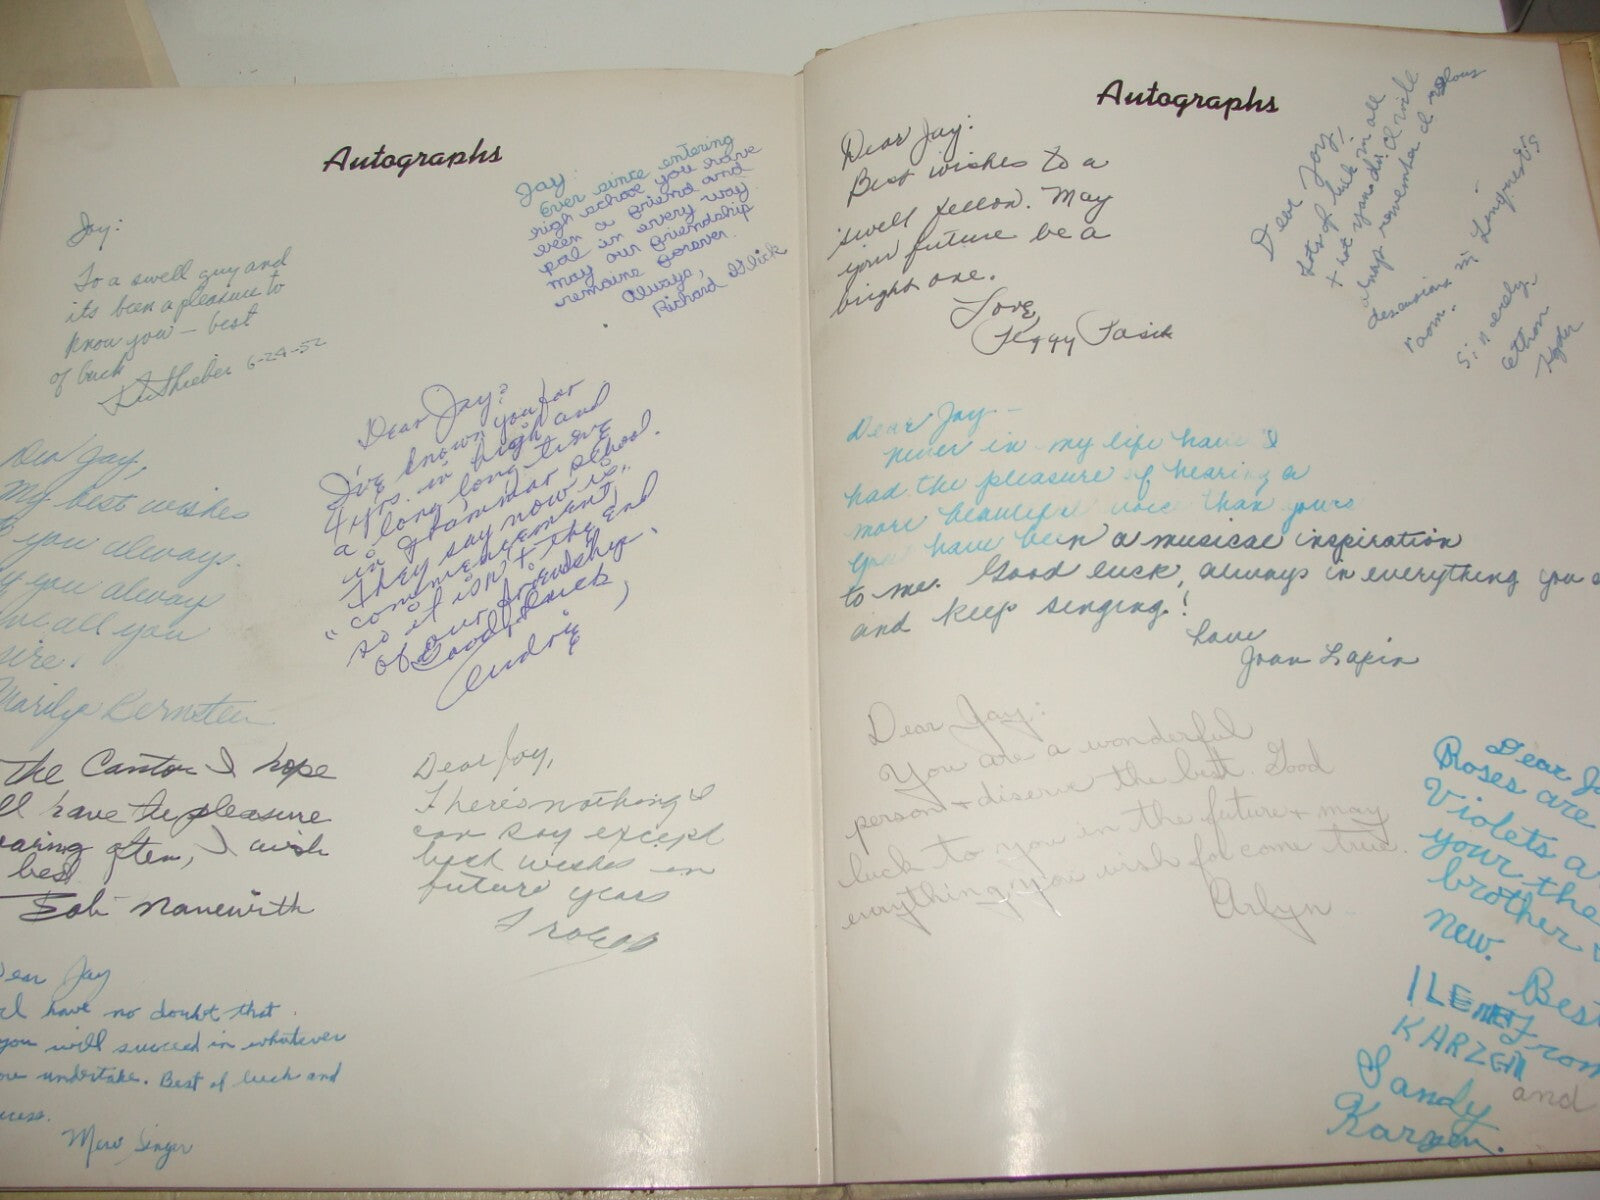 Autographs
Jay:
To a swell guy and
its been a pleasure to
know you — best
of luck
6-24-52
Jay:
Ever since entering
high school you have
been a friend and
pal in every way
may our friendship
remaine forever.
Always,
Richard Glick
Dear Jay,
My best wishes
you always.
you always
all you
Marilyn Bernstein
Dear Jay:
I've known you for
4 yrs. in high and
a long, long time
in grammar school.
They say now is
"commencement
so it isn't the end
of our friendship.
Good Luck,
Audrie
the Cantor I hope
have the pleasure
often, I wish
best
Bob Nanewirth
Dear Joy,
There's nothing I
can say except
best wishes in
future years
Dear Jay
I have no doubt that
you will succeed in whatever
undertake. Best of luck and
Merv Singer
Autographs
Dear Jay:
Best wishes to a
swell fellow. May
your future be a
bright one.
Love,
Peggy Pasik
Dear Joy,
Lots of luck in all
I will
always remember
in
room.
Sincerely,
Dear Jay —
Never in my life have I
had the pleasure of hearing a
more beautiful voice than yours
You have been a musical inspiration
to me. Good luck, always in everything you
and keep singing!
Love
Joan Lapin
Dear Jay:
You are a wonderful
person + diserve the best. Good
luck to you in the future + may
everything you wish for come true.
Arlyn
Dear
Roses are
Violets
your the
brother
new.
Best
ILENE From
KARZEN
and
Sandy
Karzen.